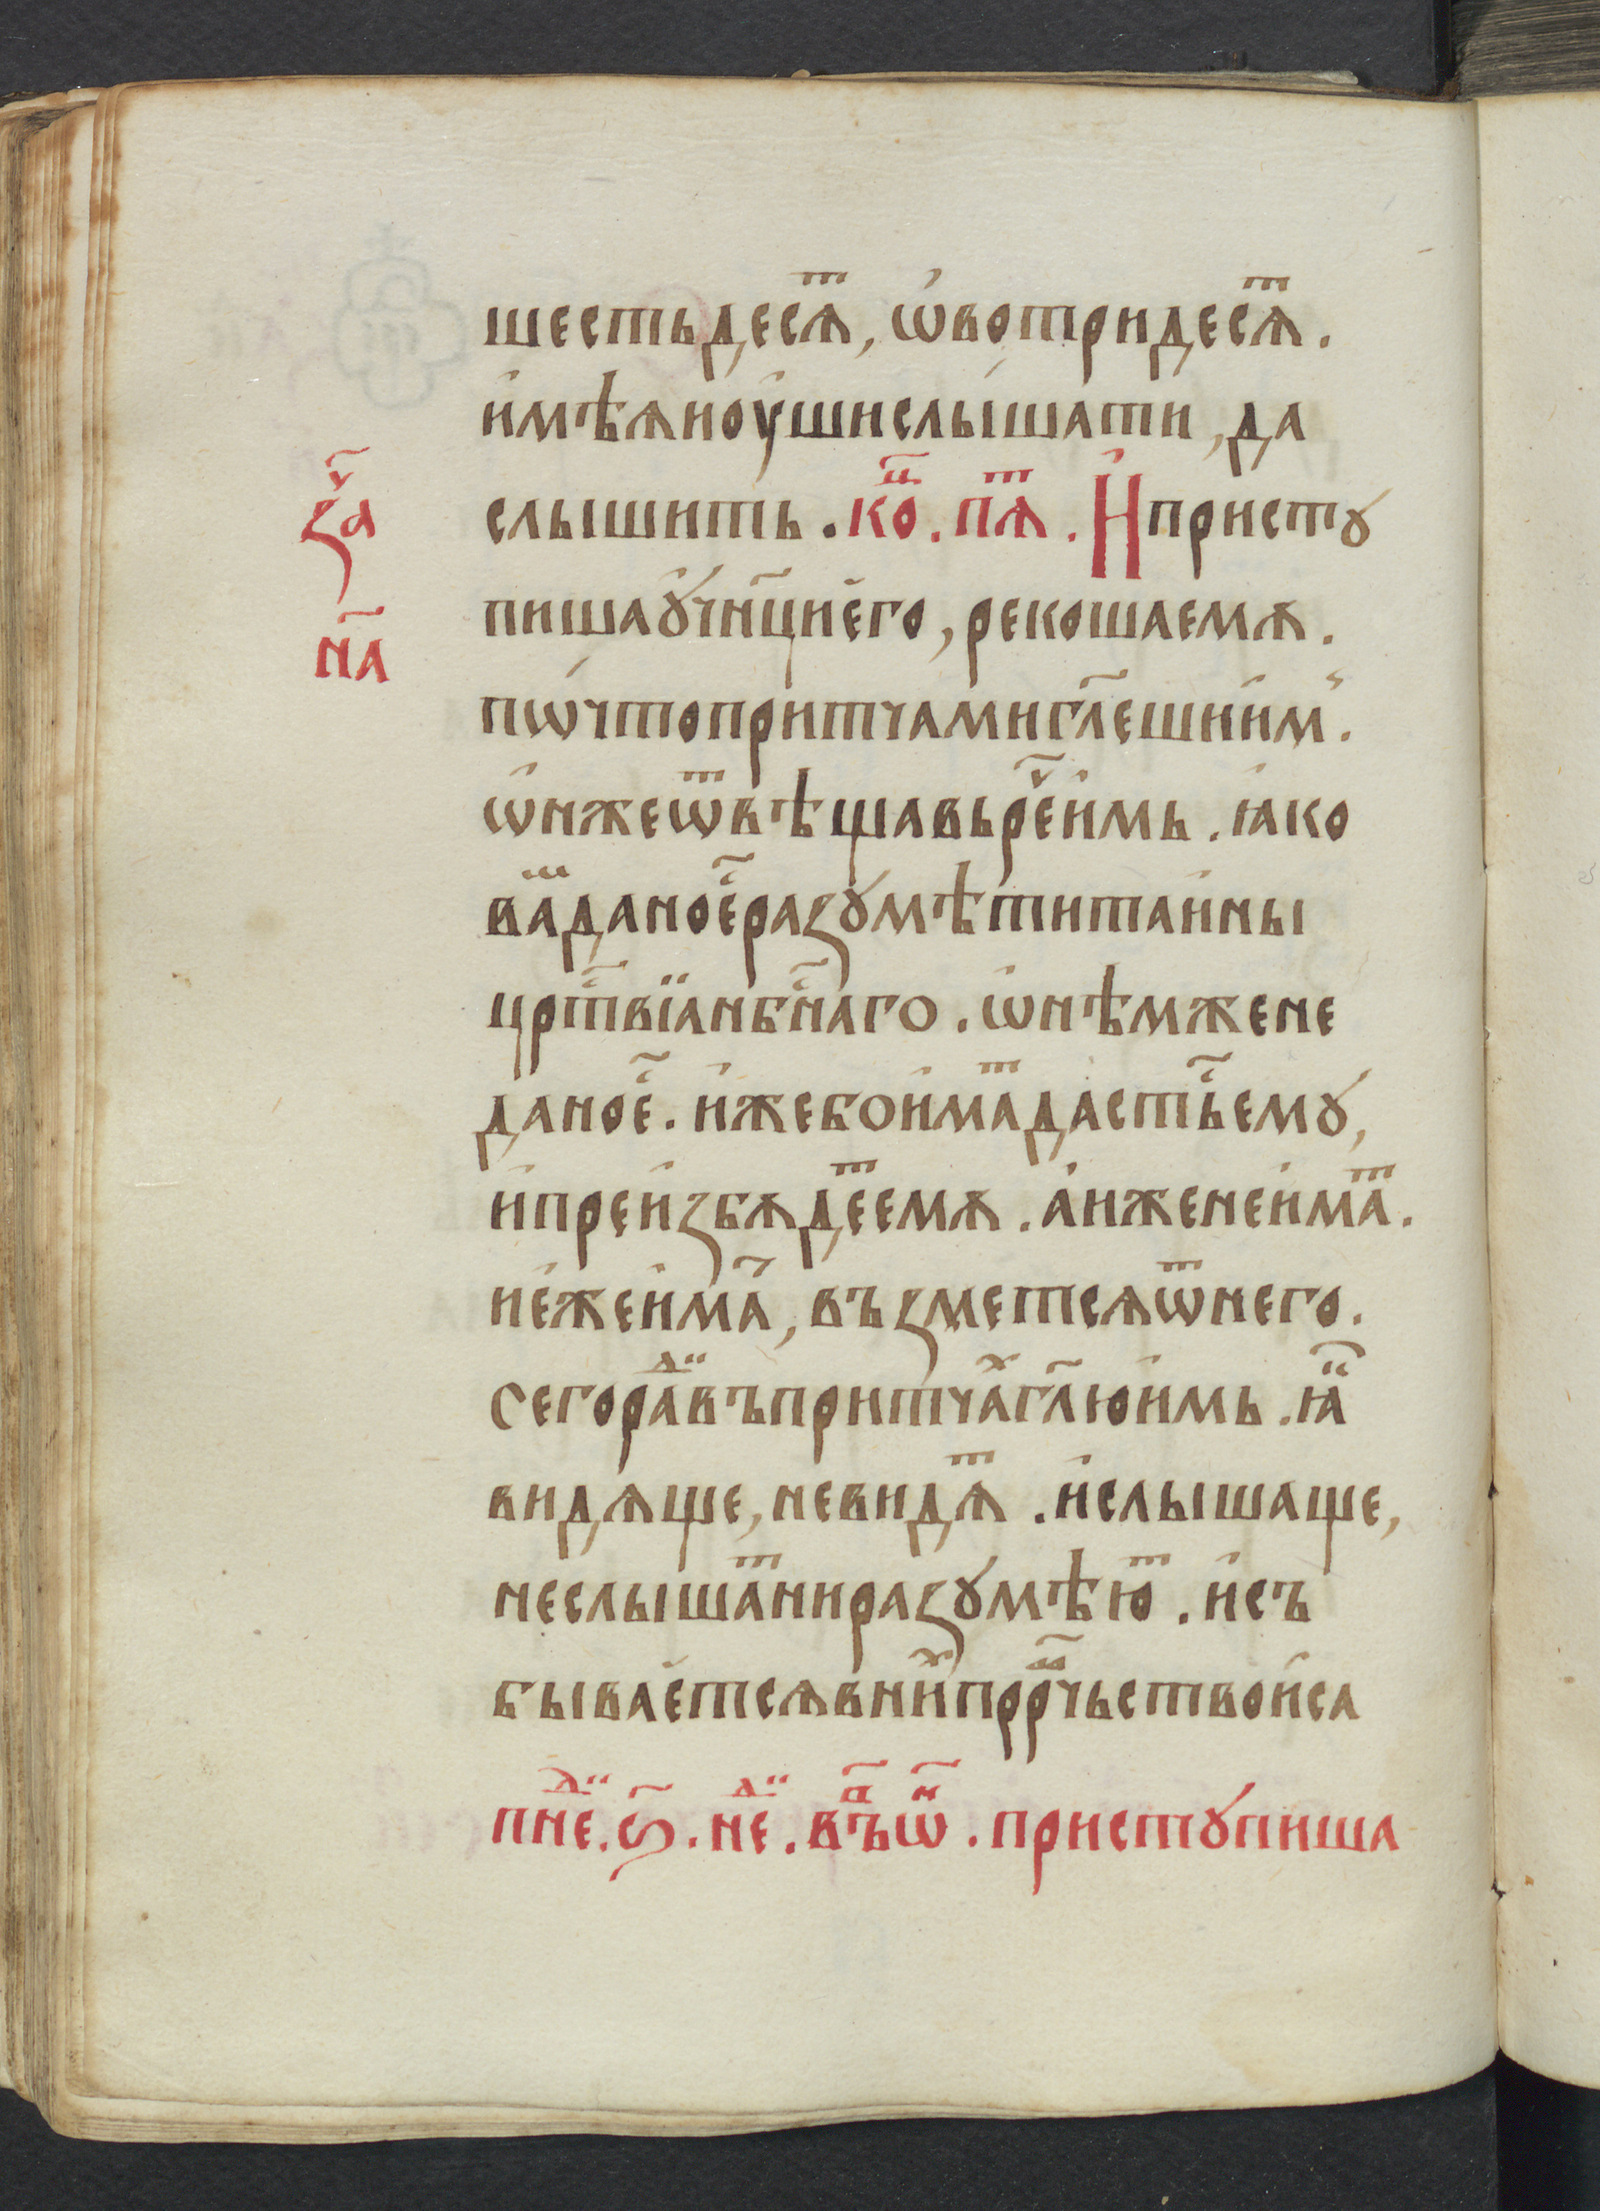 шестьдесѧⷮ, ѡ҆вотридесѧⷮ.
и҆мѣѧиоу҆шислы́шати, да
слышить. коⷰ҇. пѧⷮ. И҆присту
за̑ⷱ
пишаꙋ҆чн҃циего, рекошаемꙋ.
на҃
пѡ́чтопритчамигл҃ешиим̾.
ѡ҆нжеѿвѣщавьреⷱ҇и҆мь. ꙗко
ваⷨданоеⷭ҇разꙋмѣтитаины
црⷭ҇твїанбⷭ҇наго. ѡ҆нѣмжене
даноеⷭ҇. и҆жебои҆маⷮдастьсѧ҇емꙋ,
и҆преи҆збѫдеⷮемꙋ. а҆иженеи҆маⷮ.
ие҆жеи҆ма҃, възметсѧѿнего.
сегораⷣивъпритчаⷯгл҃юи҆мь. ꙗⷦ҇
видѧще, невидѧⷮ. и҆слышаще,
неслышаⷮниразꙋмѣюⷮ. и҆съ
бываетсѧвниⷯпрⷪ҇рчьствои҆са
пнеⷣ. ѕ҃. неⷣ. въⷫ҇ѡⷩ҇. пристꙋпиша